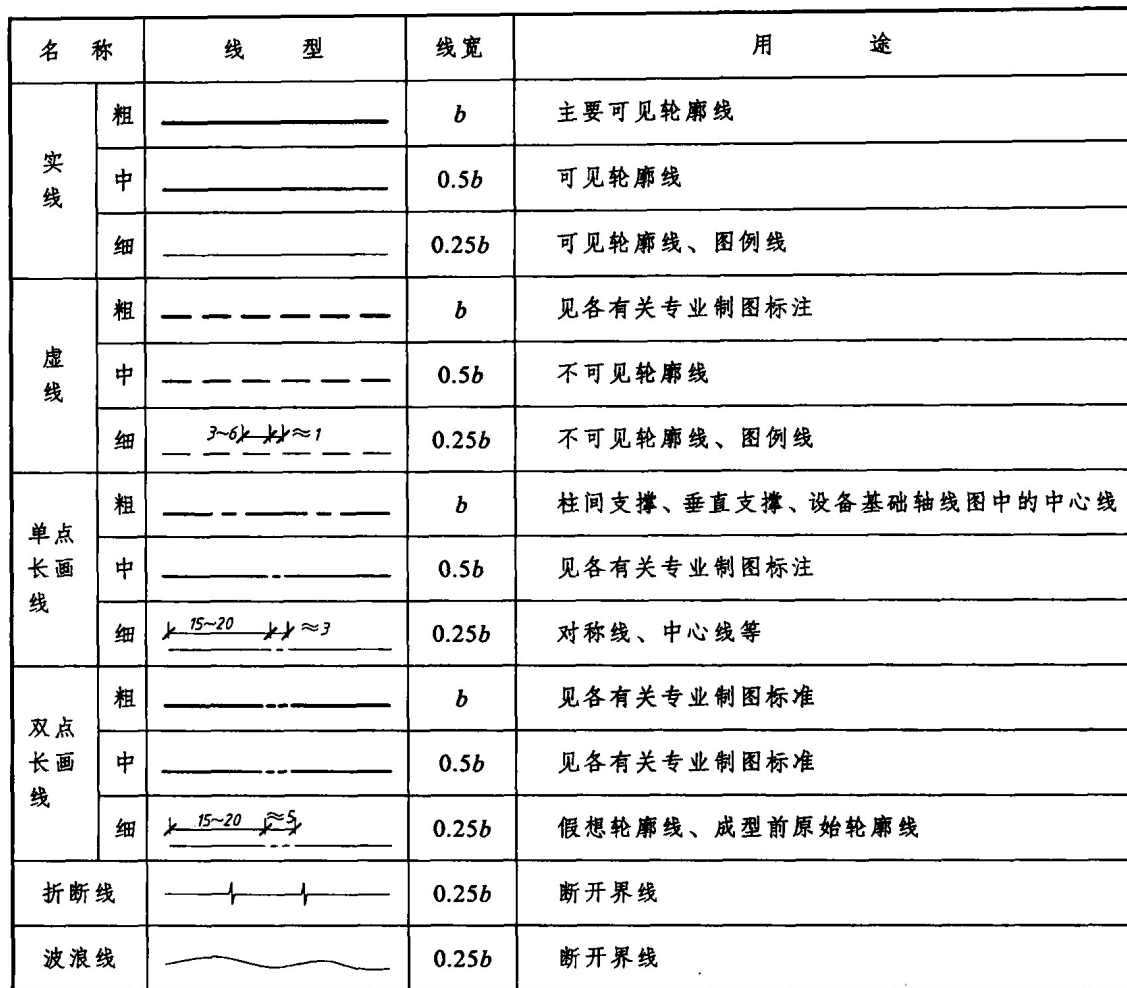 名 称 线 型 线宽 用 途
实线 粗 b 主要可见轮廓线
中 0.5b 可见轮廓线
细 0.25b 可见轮廓线、图例线
虚线 粗 b 见各有关专业制图标注
中 0.5b 不可见轮廓线
细 3~6 ≈1 0.25b 不可见轮廓线、图例线
单点长画线 粗 b 柱间支撑、垂直支撑、设备基础轴线图中的中心线
中 0.5b 见各有关专业制图标注
细 15~20 ≈3 0.25b 对称线、中心线等
双点长画线 粗 b 见各有关专业制图标准
中 0.5b 见各有关专业制图标准
细 15~20 ≈5 0.25b 假想轮廓线、成型前原始轮廓线
折断线 0.25b 断开界线
波浪线 0.25b 断开界线